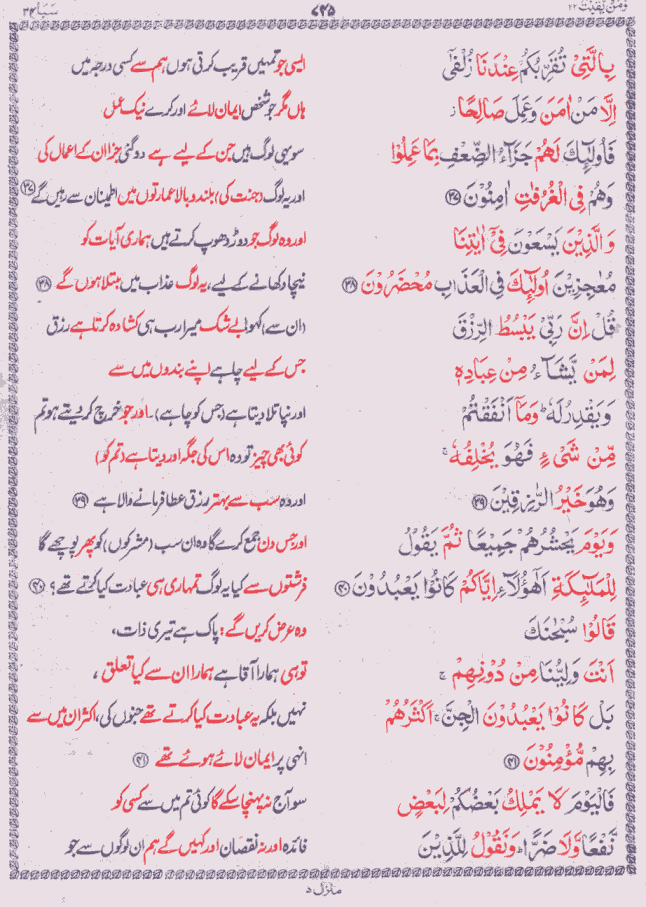 وَمَنْ يَّقْنُتْ ٢٢
٧٢٥
سَبَا ٣٤
بِالَّتِیْ تُقَرِّبُكُمْ عِنْدَنَا زُلْفٰۤی
ایسی جو تمہیں قریب کرتی ہوں ہم سے کسی درجہ میں
اِلَّا مَنْ اٰمَنَ وَعَمِلَ صَالِحًا ز
ہاں مگر جو شخص ایمان لائے اور کرے نیک عمل
فَاُولٰٓئِكَ لَهُمْ جَزَآءُ الضِّعْفِ بِمَا عَمِلُوْا
سو یہی لوگ ہیں جن کے لیے ہے دوگنی جزا ان کے اعمال کی
وَهُمْ فِی الْغُرُفٰتِ اٰمِنُوْنَ ۝٣٧
اور یہ لوگ (جنت کی) بلند و بالا عمارتوں میں اطمینان سے رہیں گے ۝٣٧
وَالَّذِیْنَ یَسْعَوْنَ فِیْۤ اٰیٰتِنَا
اور وہ لوگ جو دوڑ دھوپ کرتے ہیں ہماری آیات کو
مُعٰجِزِیْنَ اُولٰٓئِكَ فِی الْعَذَابِ مُحْضَرُوْنَ ۝٣٨
نیچا دکھانے کے لیے، یہ لوگ عذاب میں مبتلا ہوں گے ۝٣٨
قُلْ اِنَّ رَبِّیْ یَبْسُطُ الرِّزْقَ
(ان سے) کہو! بے شک میرا رب ہی کشادہ کرتا ہے رزق
لِمَنْ یَّشَآءُ مِنْ عِبَادِهٖ
جس کے لیے چاہے اپنے بندوں میں سے
وَیَقْدِرُ لَهٗ ؕ وَمَاۤ اَنْفَقْتُمْ
اور نپا تلا دیتا ہے (جس کو چاہے)۔ اور جو خرچ کر دیتے ہو تم
مِّنْ شَیْءٍ فَهُوَ یُخْلِفُهٗ ۚ
کوئی بھی چیز تو وہ اس کی جگہ اور دیتا ہے (تم کو)
وَهُوَ خَیْرُ الرّٰزِقِیْنَ ۝٣٩
اور وہ سب سے بہتر رزق عطا فرمانے والا ہے ۝٣٩
وَیَوْمَ یَحْشُرُهُمْ جَمِیْعًا ثُمَّ یَقُوْلُ
اور جس دن جمع کرے گا وہ ان سب (مشرکوں) کو پھر پوچھے گا
لِلْمَلٰٓئِكَةِ اَهٰۤؤُلَآءِ اِیَّاكُمْ كَانُوْا یَعْبُدُوْنَ ۝٤٠
فرشتوں سے کیا یہ لوگ تمہاری ہی عبادت کیا کرتے تھے؟ ۝٤٠
قَالُوْا سُبْحٰنَكَ
وہ عرض کریں گے: پاک ہے تیری ذات،
اَنْتَ وَلِیُّنَا مِنْ دُوْنِهِمْ ۚ
تو ہی ہمارا آقا ہے ہمارا ان سے کیا تعلق،
بَلْ كَانُوْا یَعْبُدُوْنَ الْجِنَّ ۚ اَكْثَرُهُمْ
نہیں بلکہ یہ عبادت کیا کرتے تھے جنوں کی، اکثر ان میں سے
بِهِمْ مُّؤْمِنُوْنَ ۝٤١
انہی پر ایمان لائے ہوئے تھے ۝٤١
فَالْیَوْمَ لَا یَمْلِكُ بَعْضُكُمْ لِبَعْضٍ
سو آج نہ پہنچا سکے گا کوئی تم میں سے کسی کو
نَّفْعًا وَّلَا ضَرًّا ؕ وَنَقُوْلُ لِلَّذِیْنَ
فائدہ اور نہ نقصان اور کہیں گے ہم ان لوگوں سے جو
منزل ٥